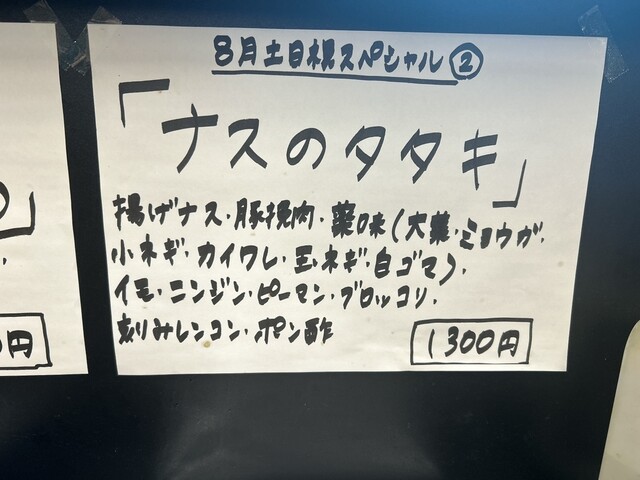 8月土日祝スペシャル②
「ナスのタタキ」
揚げナス・豚挽肉・薬味(大葉・ミョウガ・
小ネギ・カイワレ・玉ネギ・白ゴマ)・
イモ・ニンジン・ピーマン・ブロッコリ・
刻みレンコン・ポン酢
1300円
」
円